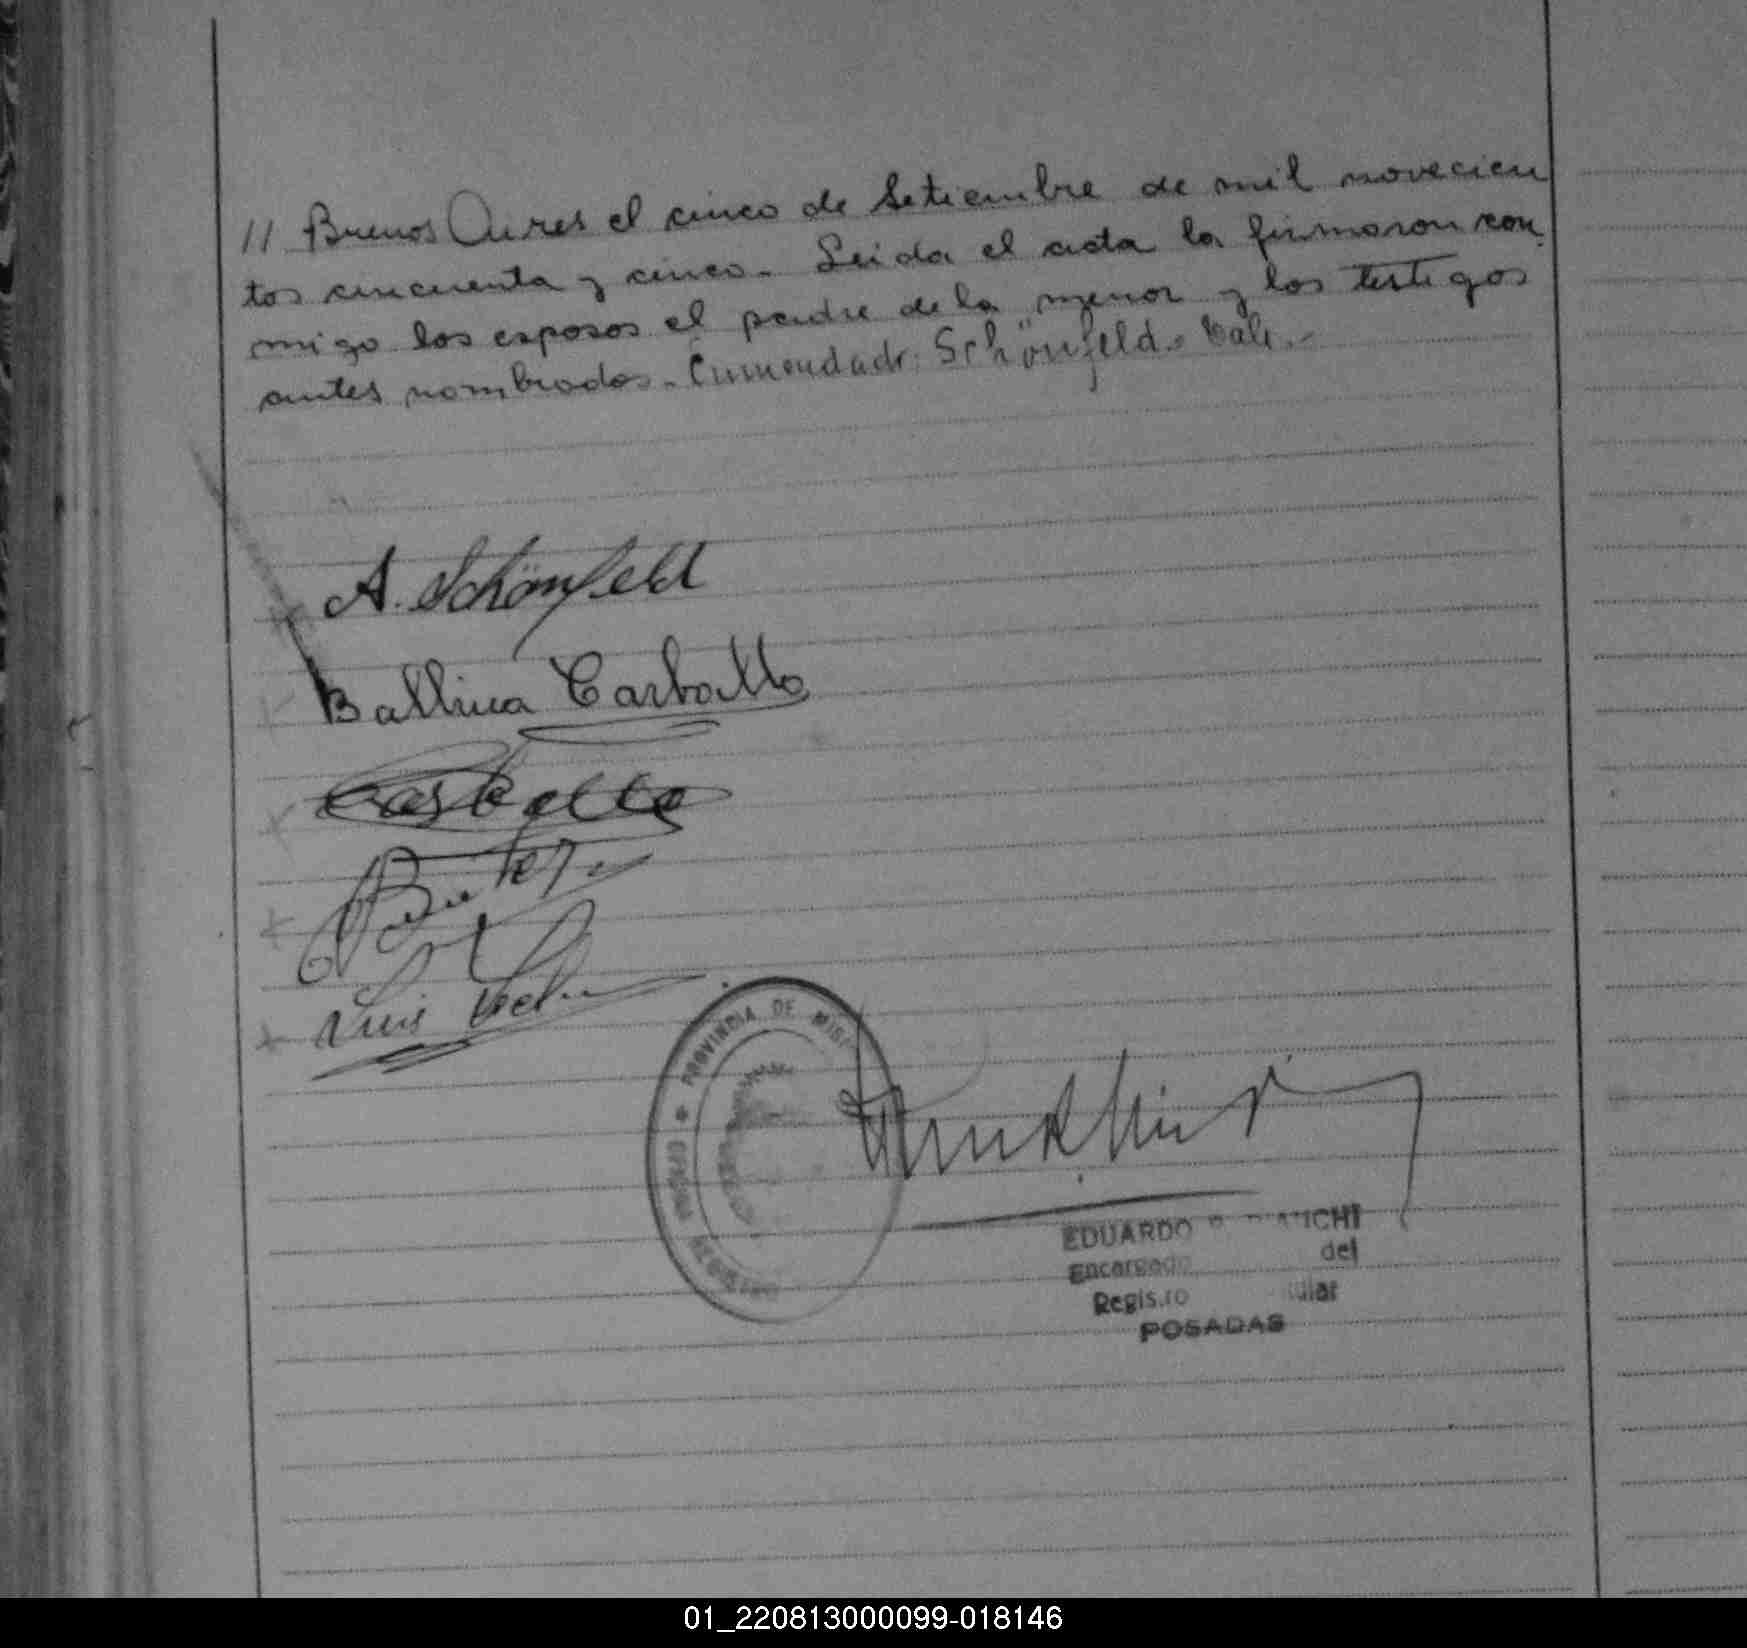 // Buenos Aires el cinco de Setiembre de mil novecien
tos cincuenta y cinco.- Leida el acta la firmaron con-
migo los esposos el padre de la menor y los testigos
antes nombrados.- Enmendado: Schönfeld.- Vale.-
A. Schönfeld
Ballina Carballo
Carballo
Luis
PROVINCIA DE
EDUARDO
Encargado del
POSADAS
01_220813000099-018146